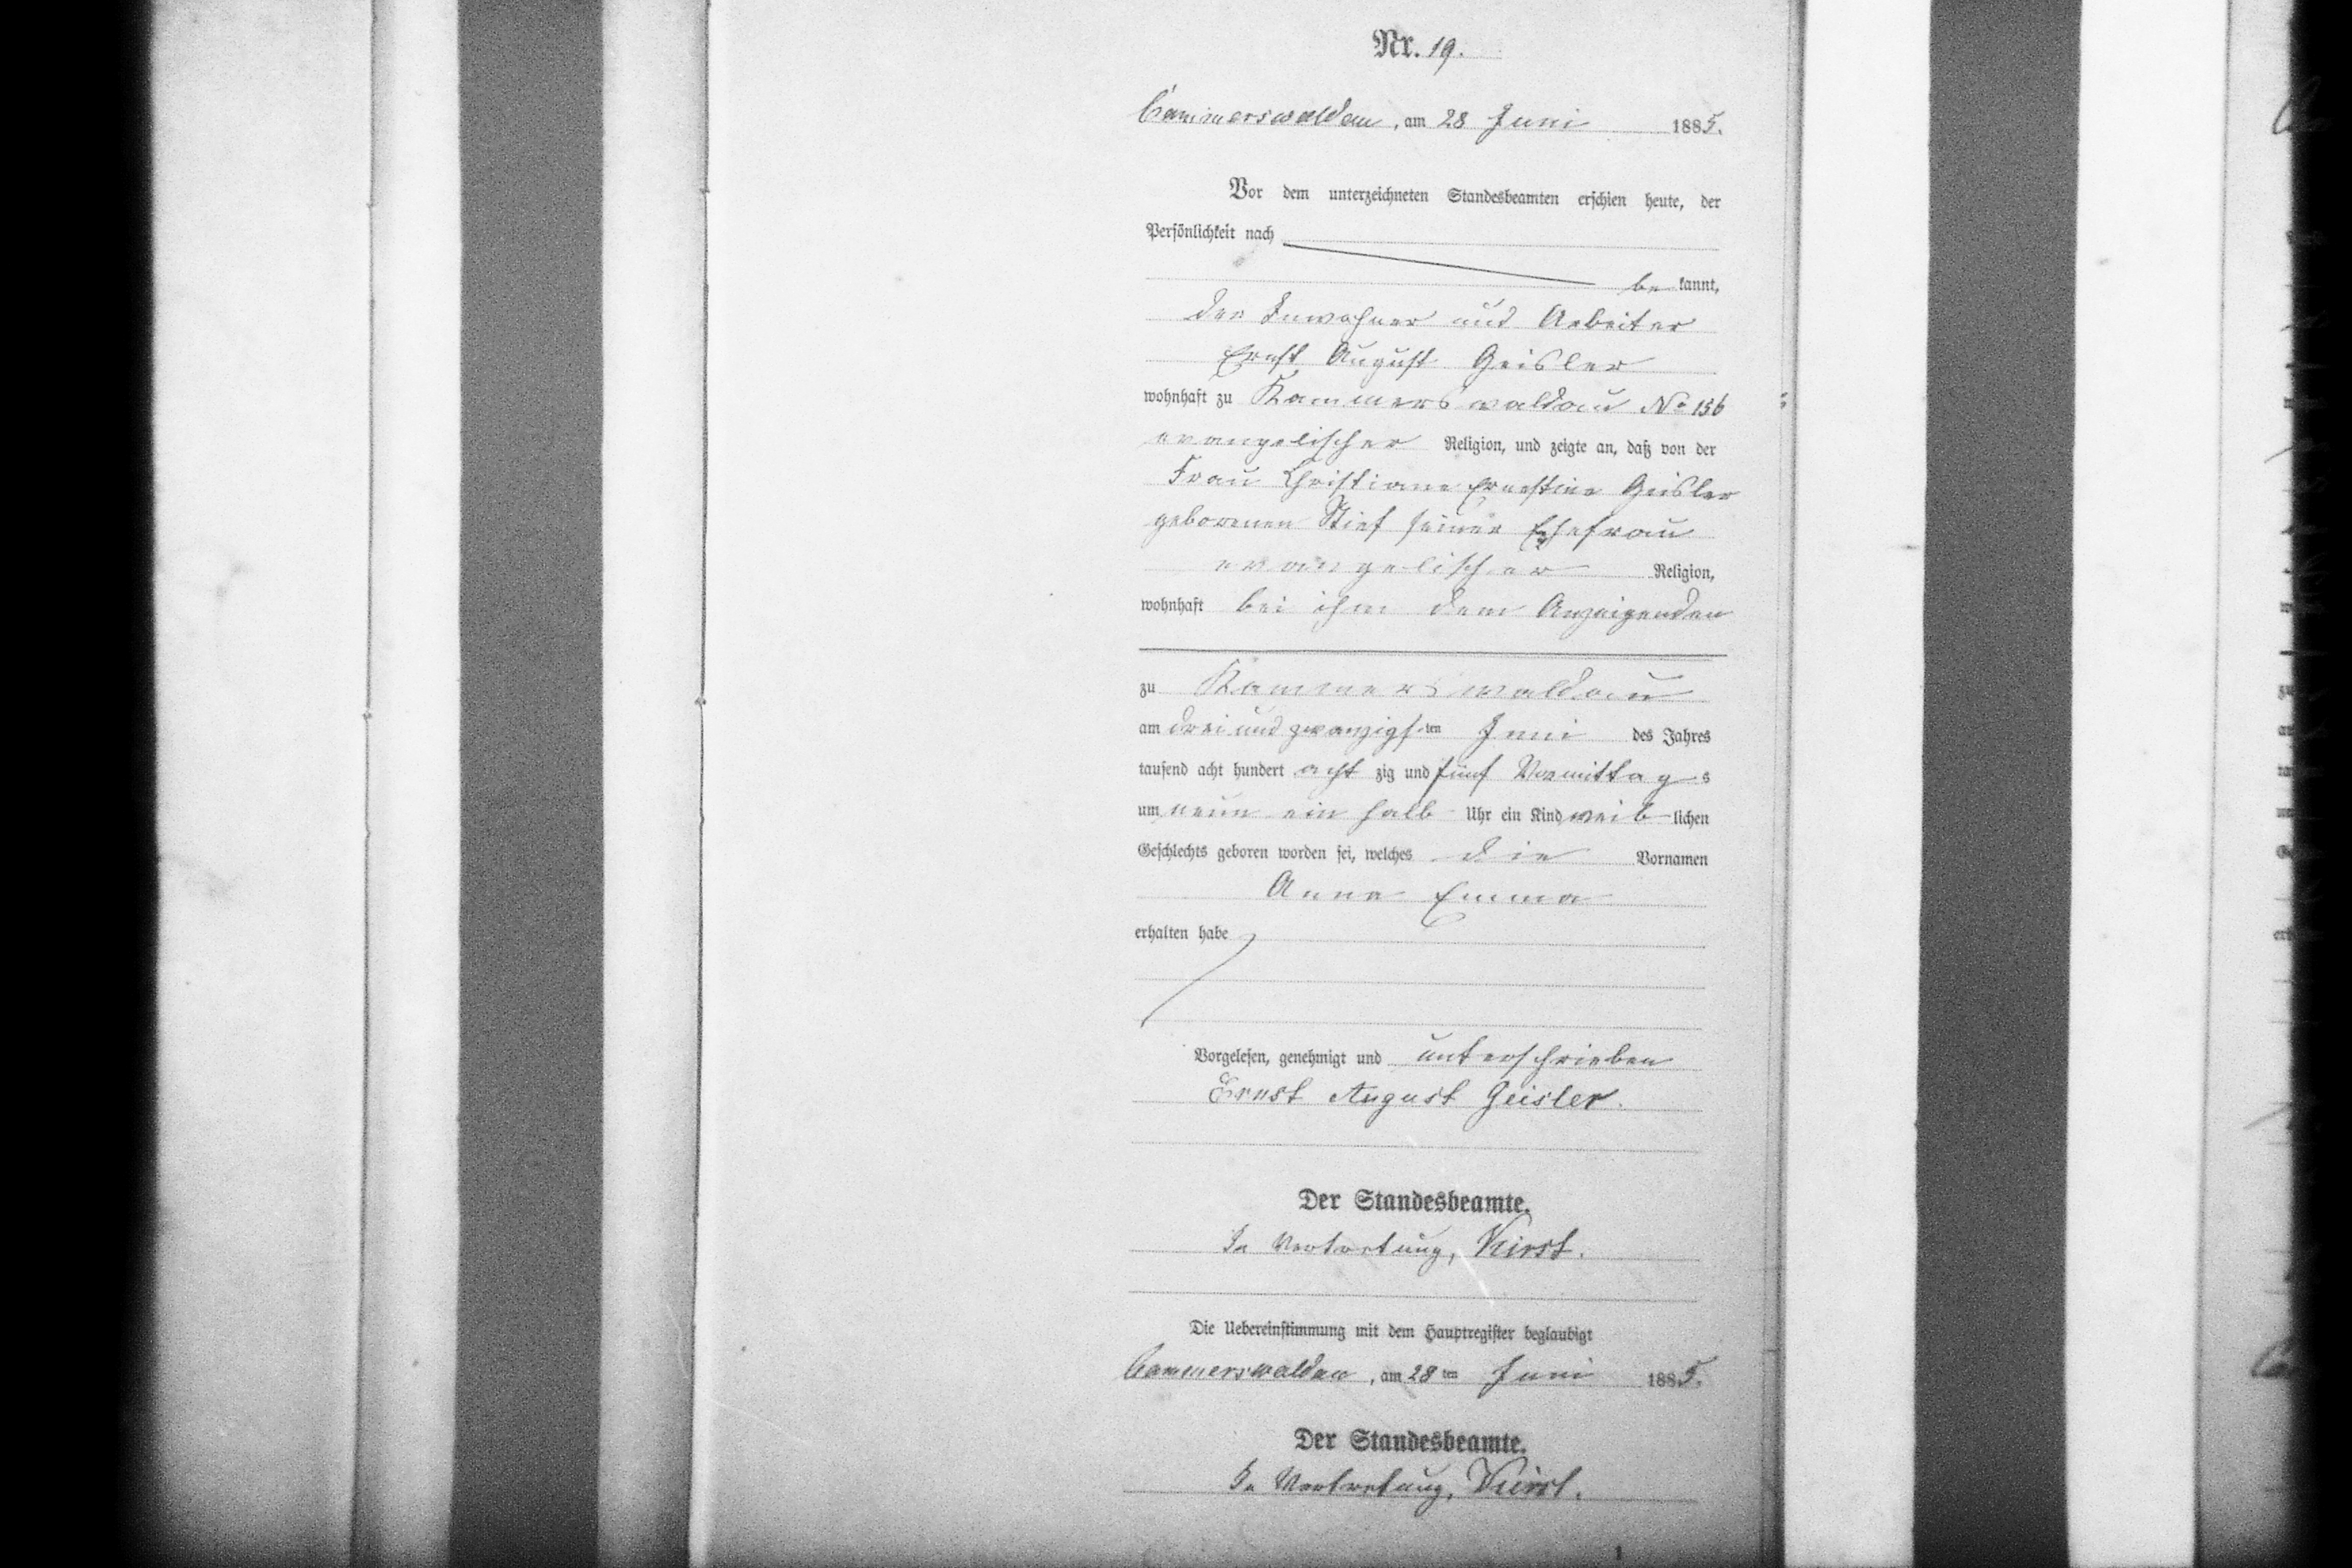 Nr. 19.
Cammerswaldau, am 28 Juni 1885.
Vor dem unterzeichneten Standesbeamten erschien heute, der
Persönlichkeit nach
be kannt,
der Inwohner und Arbeiter
Ernst August Geisler
wohnhaft zu Kammerswaldau No 156
evangelischer Religion, und zeigte an, daß von der
Frau Christiane Ernestine Geisler
geborenen Stief seiner Ehefrau
evangelischer Religion,
wohnhaft bei ihm dem Anzeigenden
zu Kammerswaldau
am drei und zwanzigsten Juni des Jahres
tausend acht hundert acht zig und fünf Vormittag s
um neun ein halb Uhr ein Kind weib lichen
Geschlechts geboren worden sei, welches die Vornamen
Anna Emma
erhalten habe
Vorgelesen, genehmigt und unterschrieben
Ernst August Geisler.
Der Standesbeamte.
In Vertretung,
Die Uebereinstimmung mit dem Hauptregister beglaubigt
Cammerswaldau, am 28 ten Juni 1885.
Der Standesbeamte.
In Vertretung,